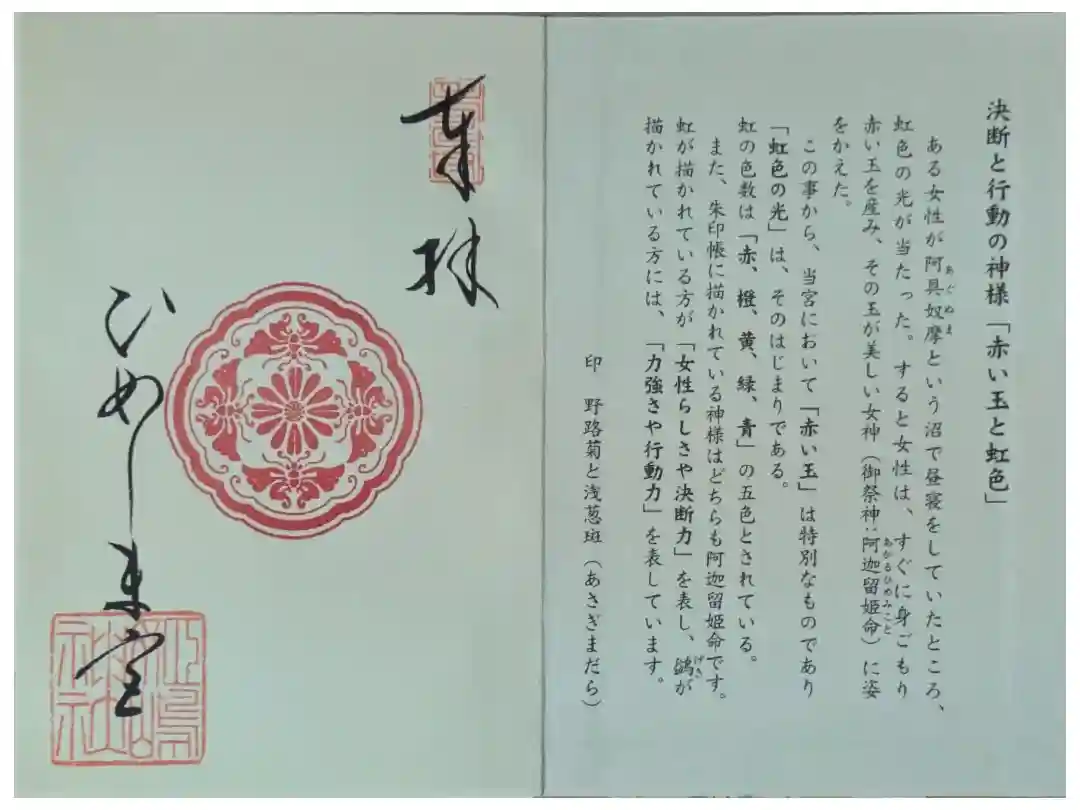 決断と行動の神様「赤い玉と虹色」
ある女性が阿具奴摩という沼で昼寝をしていたところ、
あぐぬま
虹色の光が当たった。すると女性は、すぐに身ごもり
赤い玉を産み、その玉が美しい女神（御祭神：阿迦留姫命）に姿
あかるひめみこと
をかえた。
この事から、当宮において「赤い玉」は特別なものであり
「虹色の光」は、そのはじまりである。
虹の色数は「赤、橙、黄、緑、青」の五色とされている。
また、朱印帳に描かれている神様はどちらも阿迦留姫命です。
虹が描かれている方が「女性らしさや決断力」を表し、鷁が
げき
描かれている方には、「力強さや行動力」を表しています。
印　野路菊と浅葱斑（あさぎまだら）
奉拝
ひめしま宮